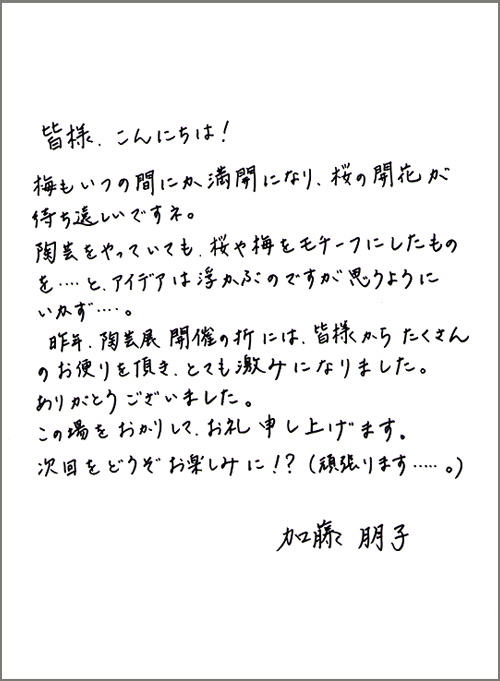 皆様、こんにちは!
梅もいつの間にか満開になり、桜の開花が
待ち遠しいですネ。
陶芸をやっていても、桜や梅をモチーフにしたもの
を‥‥と、アイデアは浮かぶのですが思うように
いかず‥‥。
昨年、陶芸展開催の折には、皆様からたくさん
のお便りを頂き、とても激みになりました。
ありがとうございました。
この場をおかりして、お礼申し上げます。
次回をどうぞお楽しみに!?(頑張ります‥‥。)
加藤朋子